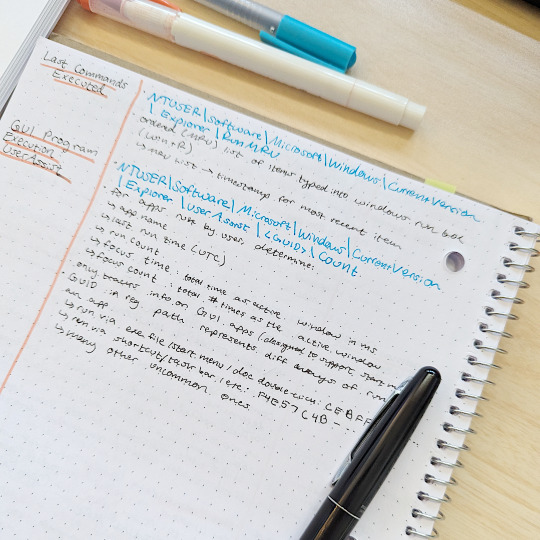 Last Commands
Executed
NTUSER\Software\Microsoft\Windows\CurrentVersion
\Explorer\RunMRU
· ordered (MRU) list of items typed into windows run box
(Win+R)
↳ MRU list → timestamp for most recent item
GUI Program
Execution
UserAssist
NTUSER\Software\Microsoft\Windows\CurrentVersion
\Explorer\UserAssist\<GUID>\Count
· for apps run by user, determine:
↳ app name
↳ last run time (UTC)
↳ run count
↳ focus time: total time as active window in ms
↳ focus count: total # times as the active window
· only tracks info on GUI apps (designed to support start
· GUID in reg. path represents diff ways of
an app
↳ run via .exe file/start menu/doc double-click: CEBFF
↳ run via shortcut/task bar/etc: F4E57C4B-...
↳ many other uncommon ones